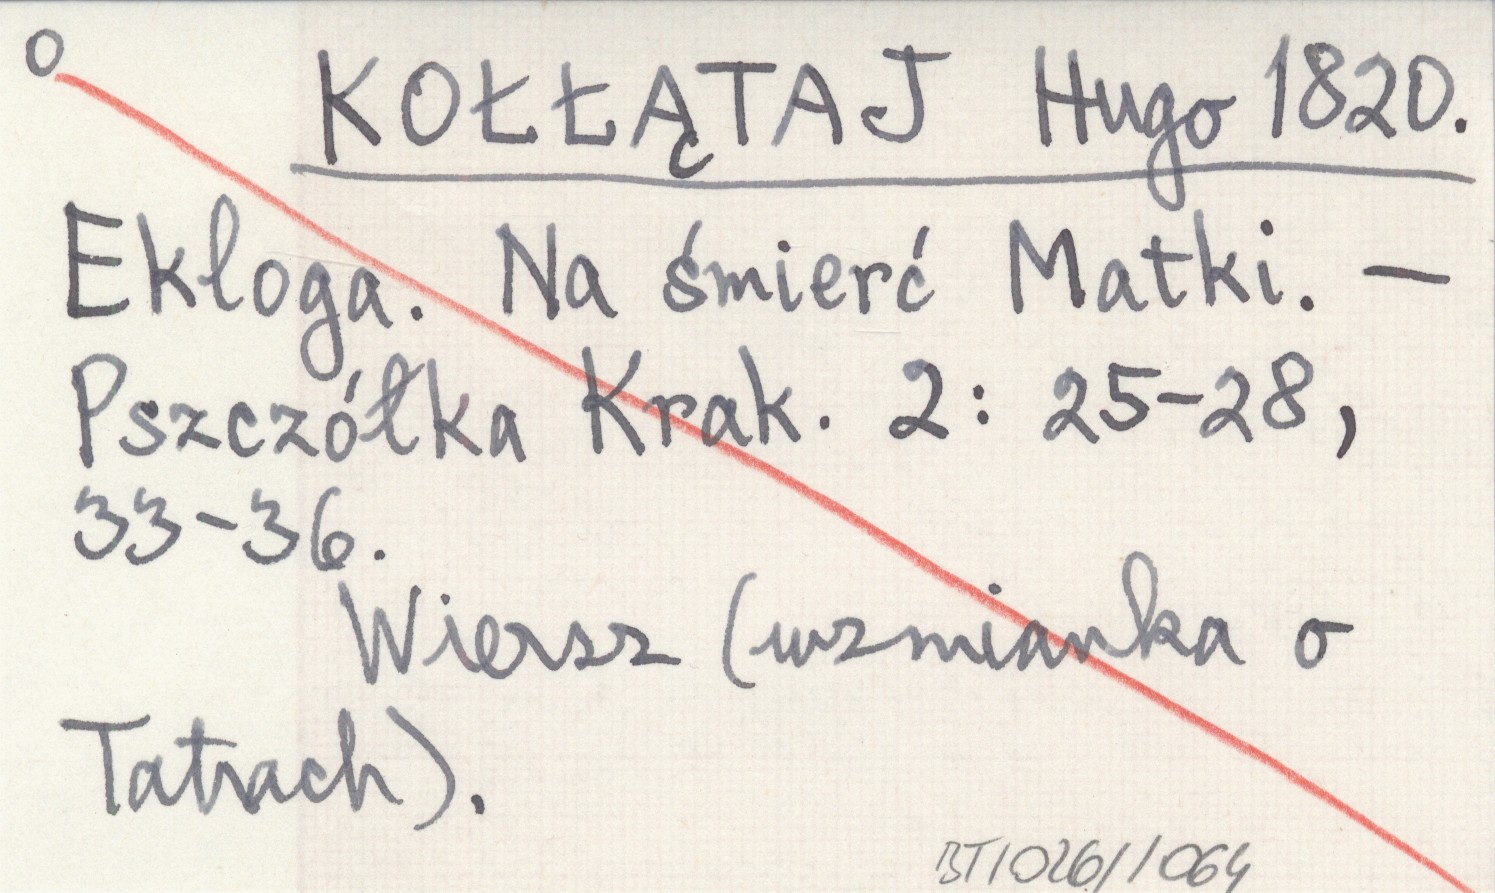 o
KOŁŁĄTAJ Hugo 1820.
Ekloga. Na śmierć Matki. —
Pszczółka Krak. 2: 25-28,
33-36.
Wiersz (wzmianka o
Tatrach).
BT/026/1064